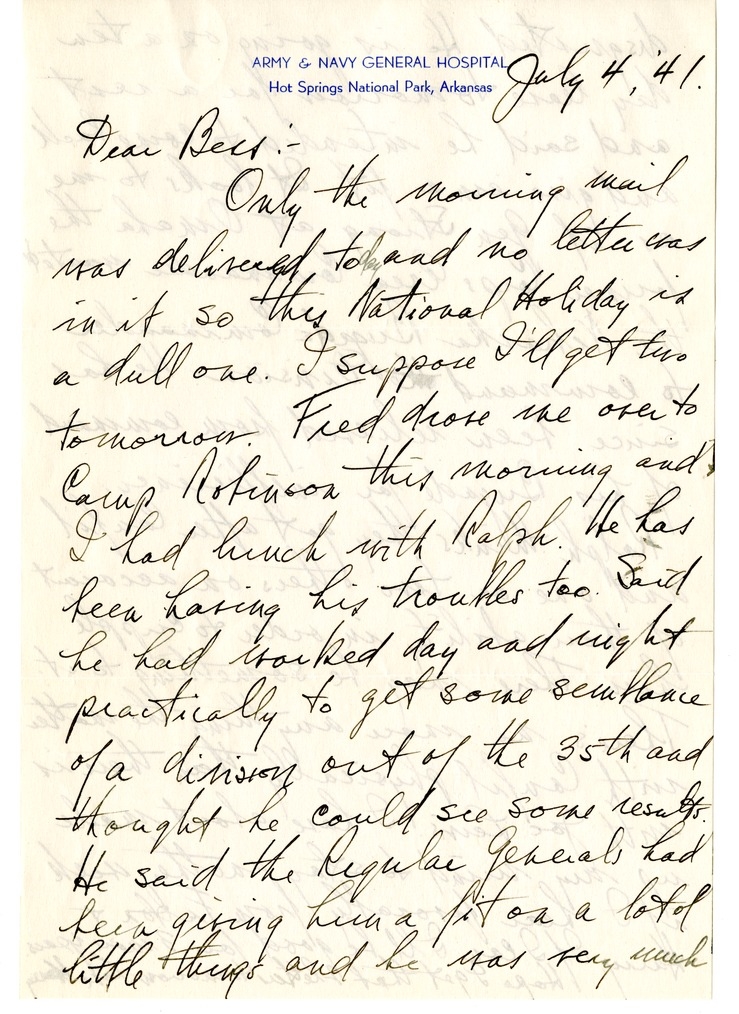 ARMY & NAVY GENERAL HOSPITAL
Hot Springs National Park, Arkansas
July 4, '41.
Dear Bess:-
Only the morning mail
was delivered today and no letter was
in it so this National Holiday is
a dull one. I suppose I'll get two
tomorrow. Fred drove me over to
Camp Robinson this morning and
I had lunch with Ralph. He has
been having his troubles too. Said
he had worked day and night
practically to get some semblance
of a division out of the 35th and
thought he could see some results.
He said the Regular Generals had
been giving him a fit on a lot of
little things and he was very much